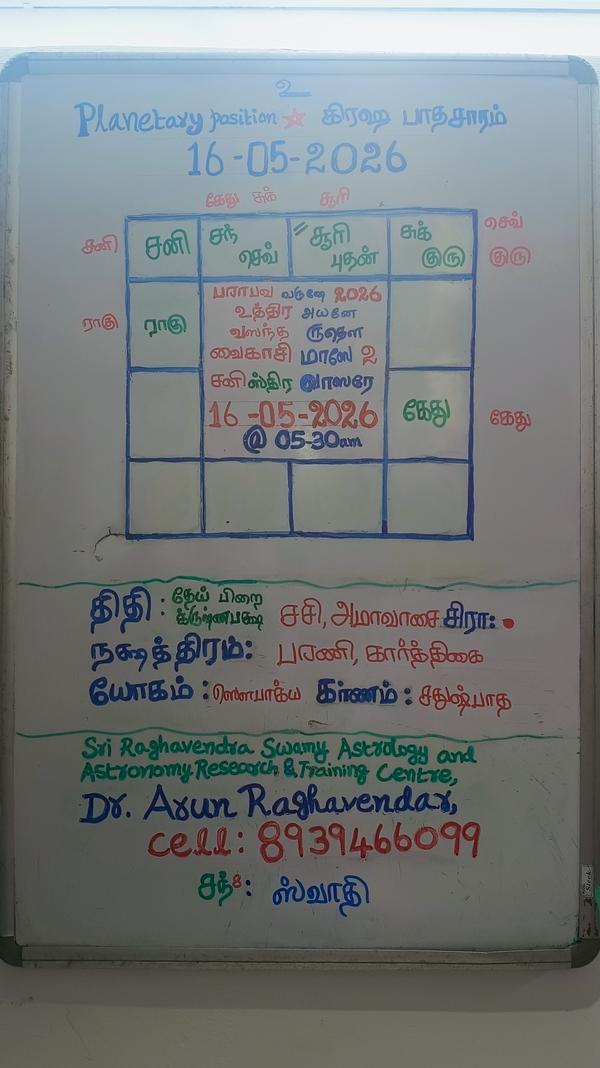 உ
Planetary position கிரஹ பாதசாரம்
16-05-2026
கேது சுக் சூரி
சனி சனி சந் செவ் சூரி புதன் சுக் குரு செவ் குரு
பராபவ வருஷே 2026
உத்திர அயனே
ராகு ராகு வஸந்த ருதௌ
வைகாசி மாஸே 2
சனி ஸ்திர வாஸரே
16-05-2026 கேது கேது
@ 05-30am
திதி : தேய் பிறை
க்ருஷ்ணபக்ஷ சசி, அமாவாசை சிரா:
நக்ஷத்திரம்: பரணி, கார்த்திகை
யோகம் : ஸௌபாக்ய கரணம் : சதுஷ்பாத
Sri Raghavendra Swamy Astrology and
Astronomy Research & Training Centre,
Dr. Arun Raghavendar,
cell: 8939466099
சந் 8: ஸ்வாதி